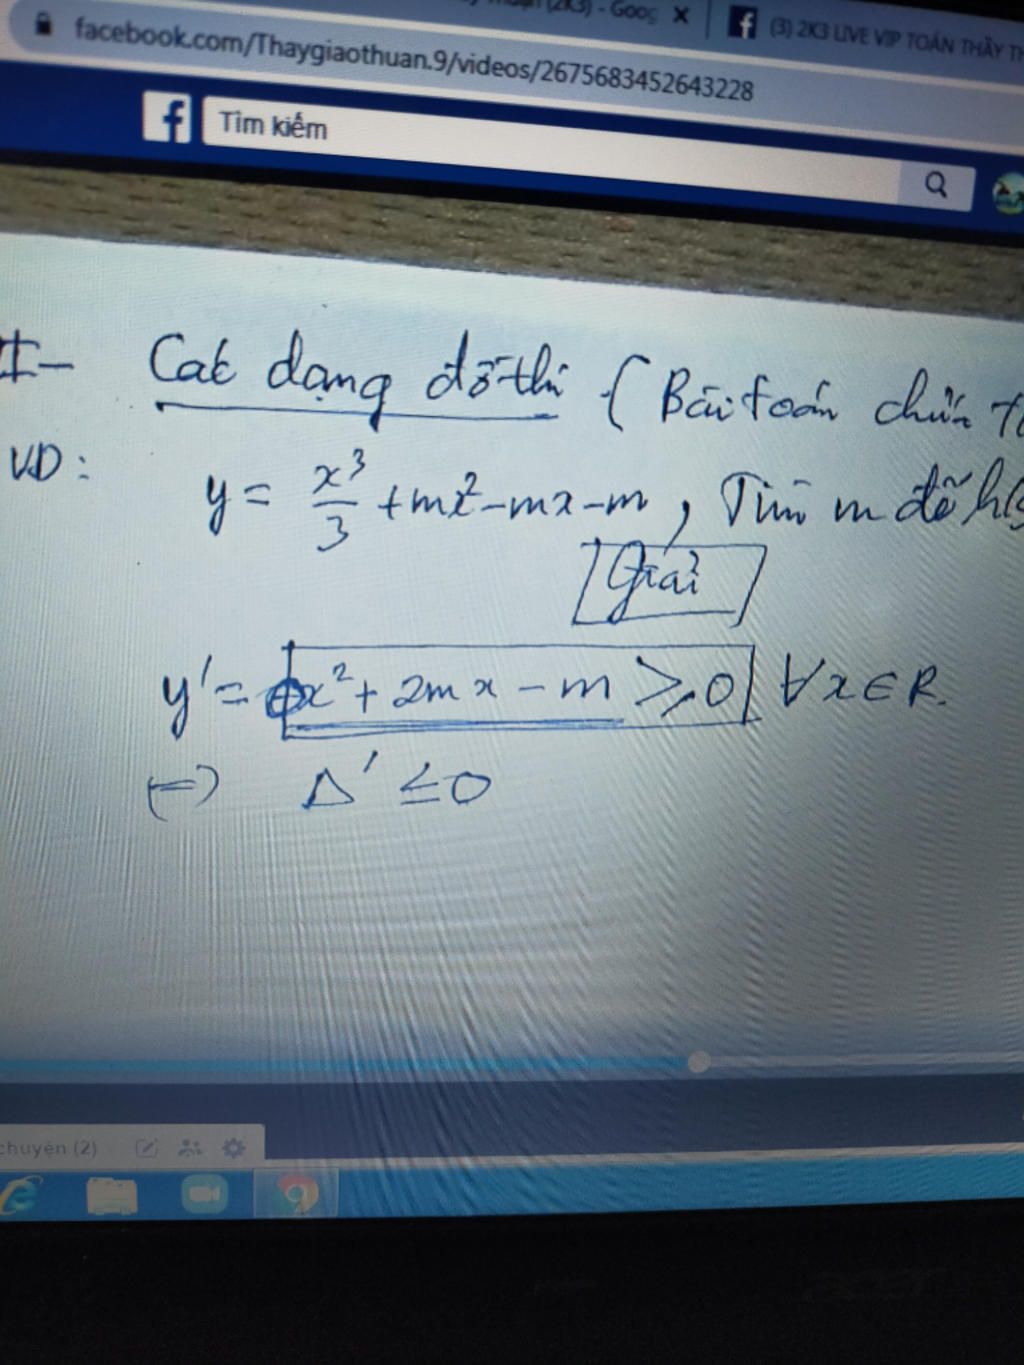 (2K3) - Goog
(3) 2K3 LIVE VIP TOÁN THẦY TH
facebook.com/Thaygiaothuan.9/videos/2675683452643228
Tìm kiếm
I- Các dạng đồ thị ( Bài toán chứa
VD: y = x³/3 + mx² - mx - m, Tìm m để h/s
Giải
y' = x² + 2mx - m ≥ 0 ∀x∈R.
(=) Δ' ≤ 0
chuyện (2)
acer